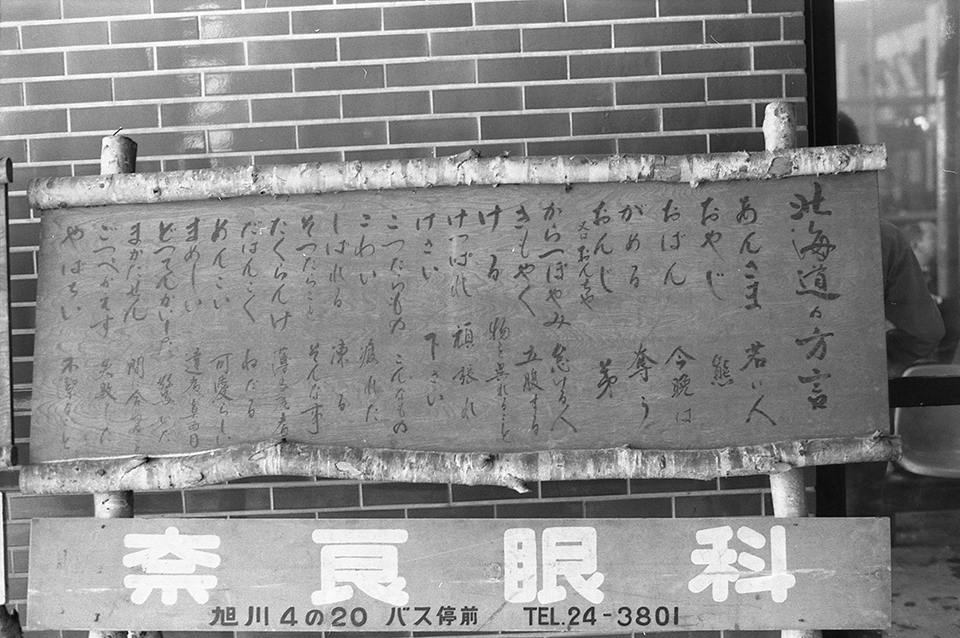 北海道の方言
あんさま 若い人
おやじ 熊
おばん 今晩は
がめる 奪う
おんじ 弟
又はおんちゃ
からつぽやみ 怠ける人
きもやく 立腹する
ける 物を呉れること
けつぱれ 頑張れ
けさい 下さい
こつたらもの こんなもの
こわい 疲れた
しばれる 凍る
そつたらこと そんな事
たくらんけ
だはんこく ねだる
めんこい 可愛らしい
まめしい
どつてんかいした
まかたせん 間に合わない
ごつぺがえす 失敗した
やばちい
奈良眼科
旭川4の20 バス停前 TEL.24-3801